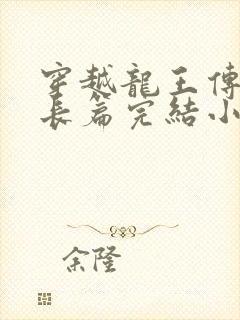 穿越龍王傳
長篇完結小
余隆